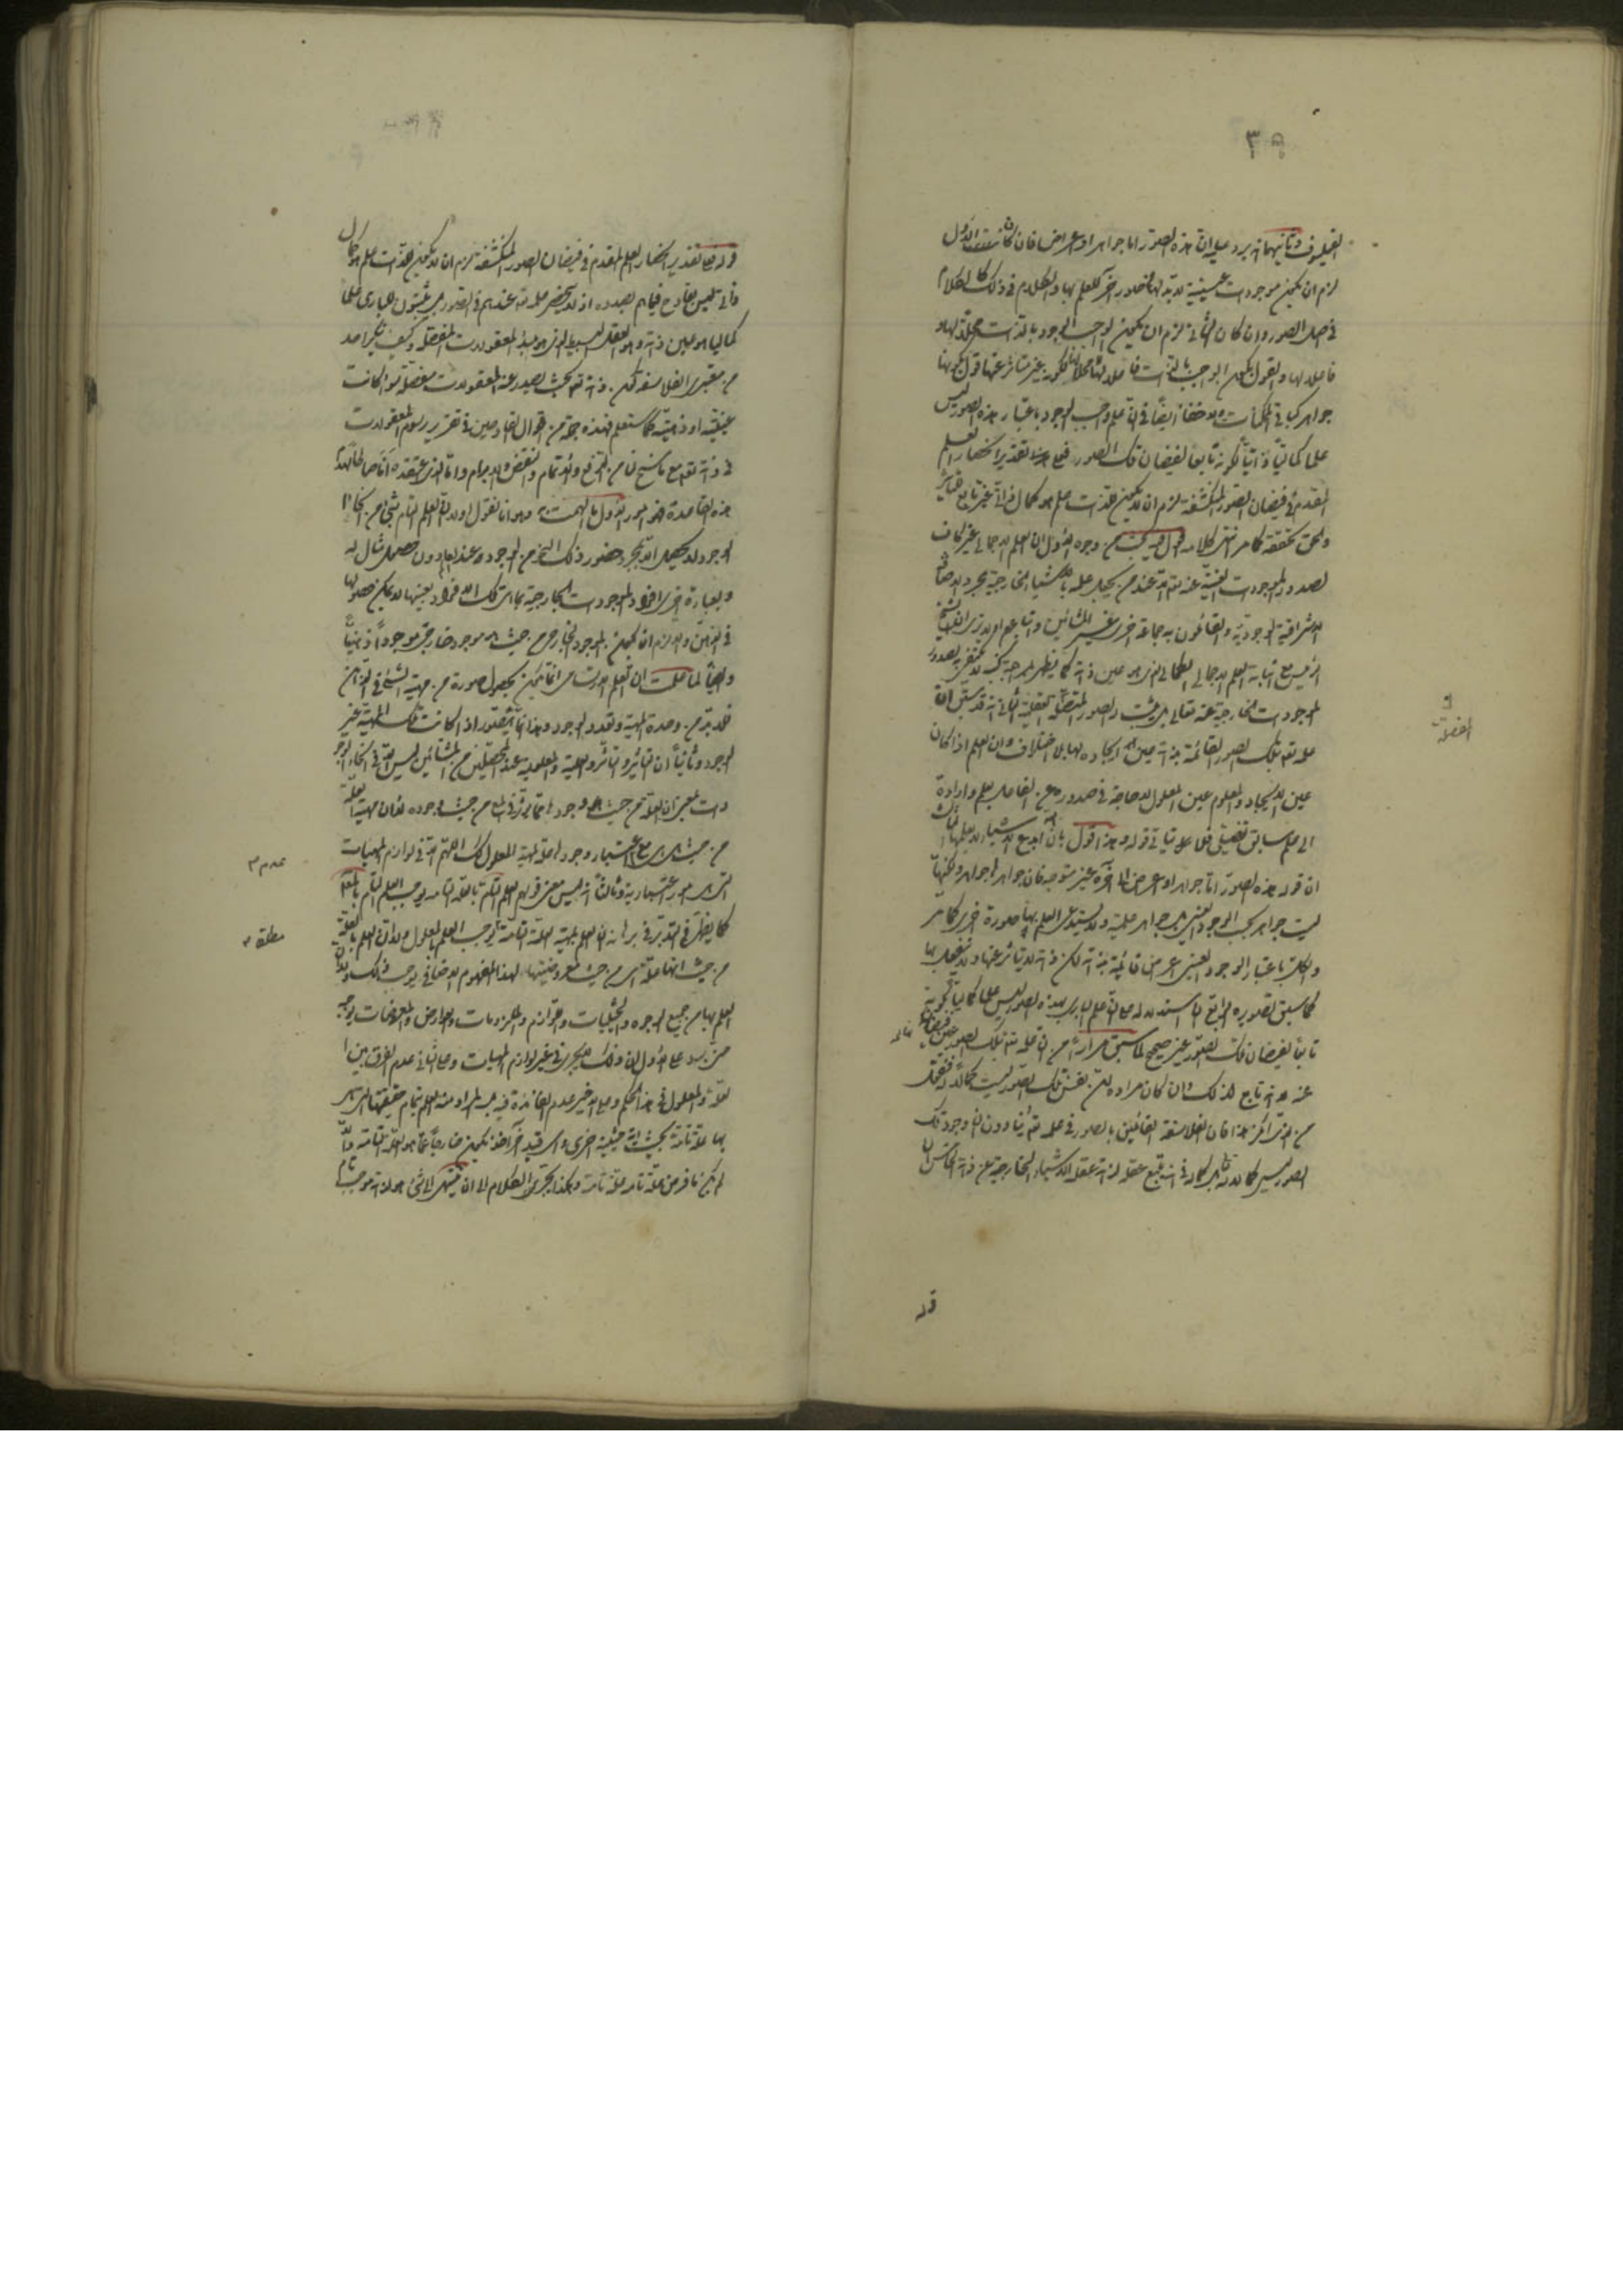 ٣
الفيلسوف وثانيهما انه يرد عليه ان هذه الصور اما جواهر او اعراض فان كانت الاول
لزم ان يكون موجودات عينية لا بد لها من صور اخر للعلم بها والكلام في ذلك كالكلام
في اصل الصور وان كان الثاني لزم ان يكون الواجب الوجود بالذات محلا لها و
فاعلا لها والقول بكون الواجب بالذات فاعلا لها محلا لها لكونه غير متأثر عنها قول بكونها
جواهر كما في الممكنات ولا خفاء ايضا في ان علم واجب الوجود باعتبار هذه الصور ليس
علما كماليا ذاتيا لكونه تابعا لفيضان تلك الصور فعلى تقدير انحصار العلم
المقدم في فيضان الصور المنكشفة لزم ان لا يكون للذات علم هو كمال ذاتي غير تابع
والحق تحققه كما مر انتهى كلامه اقول فيه بحث من وجوه الاول ان العلم الاجمالي غير كاف
لصدور الموجودات العينية عنه تعالى عند من يجعل علمه بالاشياء الخارجية بمجرد الاضافة
الاشراقية الوجودية والقائلون به جماعة اخرى غير المشائين واتباعهم اولا ترى ان الشيخ
الرئيس مع اثباته العلم الاجمالي الكمالي الذي هو عين ذاته كما يظهر لمن راجع كتبه لم يكتف به لصدور
الموجودات الخارجية عنه تعالى بل يثبت الصور المفصلة العقلية الثاني انه قد سبق ان
علمه تعالى بتلك الصور القائمة بذاته عين ايجاده لها بلا اختلاف وان العلم اذا كان
عين الايجاد والمعلوم عين المعلول لا حاجة في صدوره عن الفاعل بعلم وارادة
الى علم سابق تفصيلي فلا يتأتى قوله وحينئذ اقول بانه ابدع الاشياء لا بعلمها الثالث
ان قوله هذه الصور اما جواهر او اعراض الى آخره غير متوجه فان جواهرها جواهر ولكنها
ليست جواهر بحسب الوجود العيني بل جواهر علمية ولا يستدعي العلم بها صورة اخرى كما مر
والكل باعتبار الوجود العيني اعراض قائمة بذاته لكن ذاته لا يتأثر عنها ولا ينفعل بها
كما سبق تصويره الرابع ان استدلاله على ان علم الباري بهذه الصور ليس علما كماليا لكونه
تابعا لفيضان تلك الصور غير صحيح لما سبق مرارا من ان علمه تعالى بتلك الصور عين فيضانها
عنه لا انه تابع لذلك وان كان مراده ان نفس تلك الصور ليست كمالا له فنقول
من الذي انكر هذا فان الفلاسفة القائلين بالصور في علمه تعالى ينادون ان وجود تلك
الصور ليس كمالا له بل كماله في انه يتبع عقله لذاته عقله الاشياء الخارجية عن ذاته الخامس ان
قوله
المفصلة
قوله فعلى تقدير انحصار العلم المقدم في فيضان الصور المنكشفة لزم ان لا يكون للذات علم هو كمال
ذاتي ليس بقادح فيما هم بصدده اذ لا ينحصر علمه تعالى عندهم في الصور بل يثبتون للباري علما
كماليا هو عين ذاته وهو العقل البسيط الذي هو مبدأ المعقولات المفصلة وكيف ينكر احد
من معتبري الفلاسفة كون ذاته تعالى بحيث يصدر عنه المعقولات مفصلة سواء كانت
عينية او ذهنية كما ستعلم فهذه جملة من اقوال القادحين في تقرير رسوم المعقولات
في ذاته تعالى مع ما سنح لنا من الجرح والاتمام والنقض والابرام واما الذي نعتقده قادحا لهذا
هذه القاعدة فهي امور الاول ما الهمت به وهو انا نقول اولا ان العلم التام بشيء من انحاء
الوجود لا يحصل الا بمجرد حضور ذلك النحو من الوجود عند العالم دون حصول مثال له
وبعبارة اخرى افراد الموجودات الخارجية بما هي تلك الافراد بعينها لا يمكن حصولها
في الذهن والا لزم ان يكون الموجود الخارجي من حيث هو موجود خارجي موجودا ذهنيا
وايضا لما علمت ان العلم الارتسامي انما يكون بحصول صورة من مهية الشيء في الذهن
فلا بد من وحدة المهية وتعدد الوجود وهذا انما يتصور اذا كانت تلك المهية غير
الوجود وثانيا ان التأثير والتأثر والعلية والمعلولية عند المحصلين من المشائين ليس الا في انحاء الوجو
دات بمعنى ان العلة من حيث وجودها مما يؤثر في المعلول من حيث وجوده لا ان مهية العلة
من حيث هي هي مع اعتبار وجودها علة لمهية المعلول كذلك اللهم الا في لوازم المهيات
التي هي امور اعتبارية وثالثا انه ليس معنى قولهم العلم التام بالعلة التامة يوجب العلم التام بالمعلول
كما يظهر في التدبر في برهانه ان العلم بمهية العلة التامة يوجب العلم بالمعلول ولا ان العلم بالعلة
من حيث انها علة اي من حيث معروضيتها لهذا المفهوم الاضافي يوجب ذلك ولا ان
العلم بها من جميع الوجوه والحيثيات واللوازم والملزومات والعوارض والمعروضات يوجبه
حتى يرد على الاول ان ذلك لا يجري في غير لوازم المهيات وعلى الثاني عدم الفرق بين
العلة والمعلول في هذا الحكم وعلى الاخير عدم الفائدة فيه بل المراد منه العلم بتمام حقيقتها التي هي
بها علة تامة بحيث اية حيثية اخرى واي قيد آخر اخذ يكون خارجا عما هو العلة التامة والا
لم يكن ما فرض علة تامة علة تامة وهكذا يجري الكلام الى ان ينتهي الى شيء هو لذاته موجب تام
عدم
مطلقة